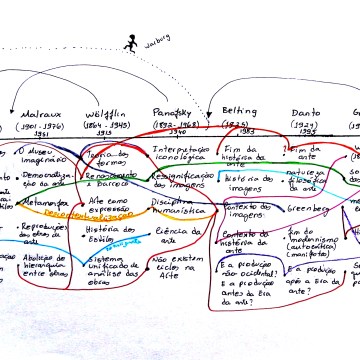 warburg
Malraux
(1901-1976)
1951
O museu
imaginário
Democratiza-
ção da arte
Metamorfose
Reproduções
das obras de
arte
Abolição de
hierarquia
entre obras
Wölfflin
(1864-1945)
1915
Teoria das
formas
Renascimento
e barroco
Arte como
expressão
História dos
Estilos
Sistema
unificado de
análise das
obras
Panofsky
(1892-1968)
1940
Interpretação
iconológica
Ressignificação
das imagens
Disciplina
humanística
Ciência da
arte
Não existem
ciclos na
Arte
Belting
(1935)
1983
Fim da
história da
arte
história das
imagens
Contexto das
imagens
Contexto da
história da
arte
E a produção
não ocidental?
E a produção
antes da Era
da arte?
Danto
(1924)
1995
Fim da
arte
natureza
filosófica
da arte
Greenberg
fim do
modernismo
(autocrítica)
(manifestos)
E a produção
após a Era da
arte?